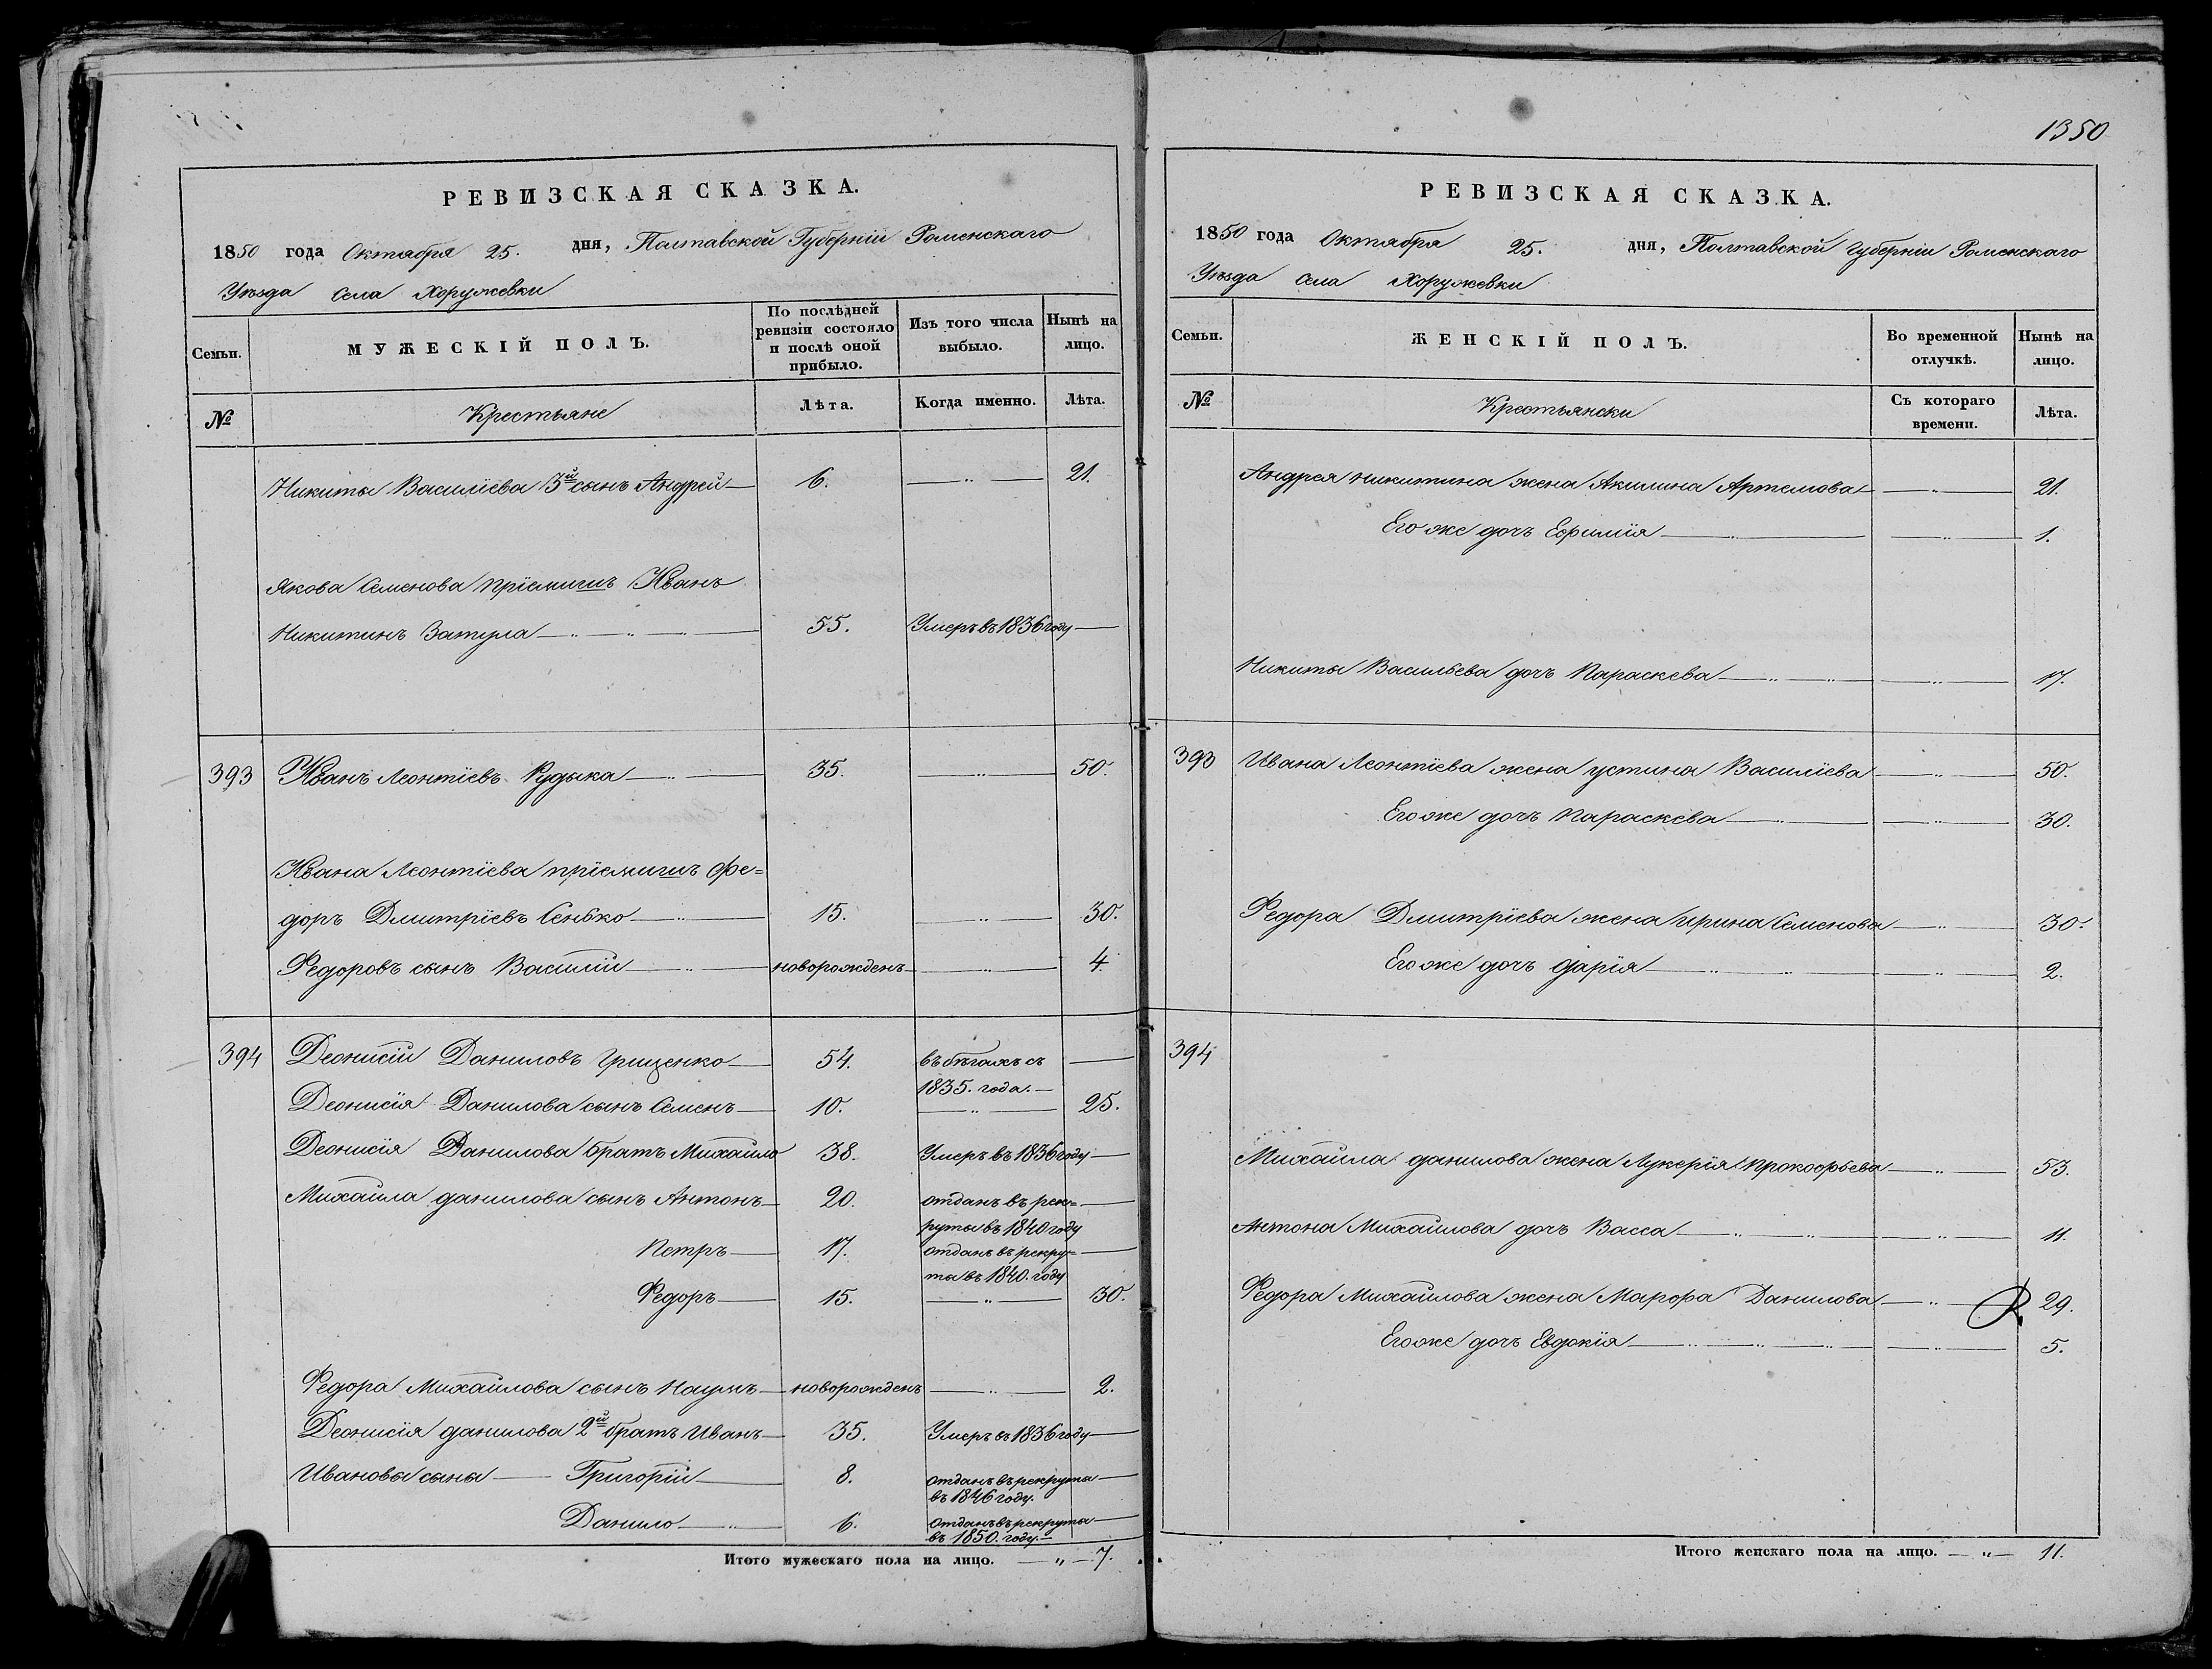 РЕВИЗСКАЯ СКАЗКА.
1850 года Октября 25. дня, Полтавской Губерніи Роменскаго
Уѣзда Села Хоружевки
Семьи.
МУЖЕСКІЙ ПОЛЪ.
По послѣдней ревизіи состояло и послѣ оной прибыло.
Изъ того числа выбыло.
Нынѣ на лицо.
№
Крестьяне
Лѣта.
Когда именно.
Лѣта.
Никиты Василіева 3й сынъ Андрей — 6. — " — 21.
Якова Семенова пріемышъ Иванъ
Никитинъ Затула — " — " — " — 55. Умеръ въ 1836 году —
393 Иванъ Леонтіевъ Рудыка — " — 35. — " — 50.
Ивана Леонтіева пріемышъ Фе=
доръ Дмитріевъ Сенько — " — 15. — " — 30.
Федоровъ сынъ Василій — " — новорожденъ — " — 4.
394 Деонисій Даниловъ Грищенко — 54. въ бѣгахъ съ —
1835. года. —
Деонисія Данилова сынъ Семенъ — 10. — " — 25.
Деонисія Данилова братъ Михайло 38. Умеръ въ 1836 году —
Михайла данилова сынъ Антонъ — 20. отданъ въ рек= —
руты въ 1840 году
Петръ — 17. отданъ въ рекру= —
ты въ 1840. году
Федоръ — 15. — " — 30.
Федора Михайлова сынъ Наумъ — новорожденъ — " — 2.
Деонисія данилова 2й братъ Иванъ — 35. Умеръ въ 1836 году —
Ивановы сыны — Григорій — 8. отданъ въ рекруты —
въ 1846 году.
Данило — " — 6. отданъ въ рекруты —
въ 1850. году. —
Итого мужескаго пола на лицо. — " — 7.
1350
РЕВИЗСКАЯ СКАЗКА.
1850 года Октября 25. дня, Полтавской Губерніи Роменскаго
Уѣзда Села Хоружевки
Семьи.
ЖЕНСКІЙ ПОЛЪ.
Во временной отлучкѣ.
Нынѣ на лицо.
№
Крестьянски
Съ котораго времени.
Лѣта.
Андрея Никитина жена Акилина Артемова — " — 21.
Его же дочь Ефимія — " — — " — 1.
Никиты Васильева дочь Параскева — " — " — — " — 17.
393 Ивана Леонтіева жена Устина Василіева — " — 50.
Его же дочь Параскева — " — — " — 30.
Федора Дмитріева жена Ирина Семенова — " — 30.
Его же дочь Дарія — " — " — — " — 2.
394
Михайла данилова жена Лукерія Прокофьева — " — 53.
Антона Михайлова дочь Васса — " — " — — " — 11.
Федора Михайлова жена Марфа Данилова — " — 29.
Его же дочь Евдокія — " — " — " — — " — 5.
Итого женскаго пола на лицо. — " — 11.